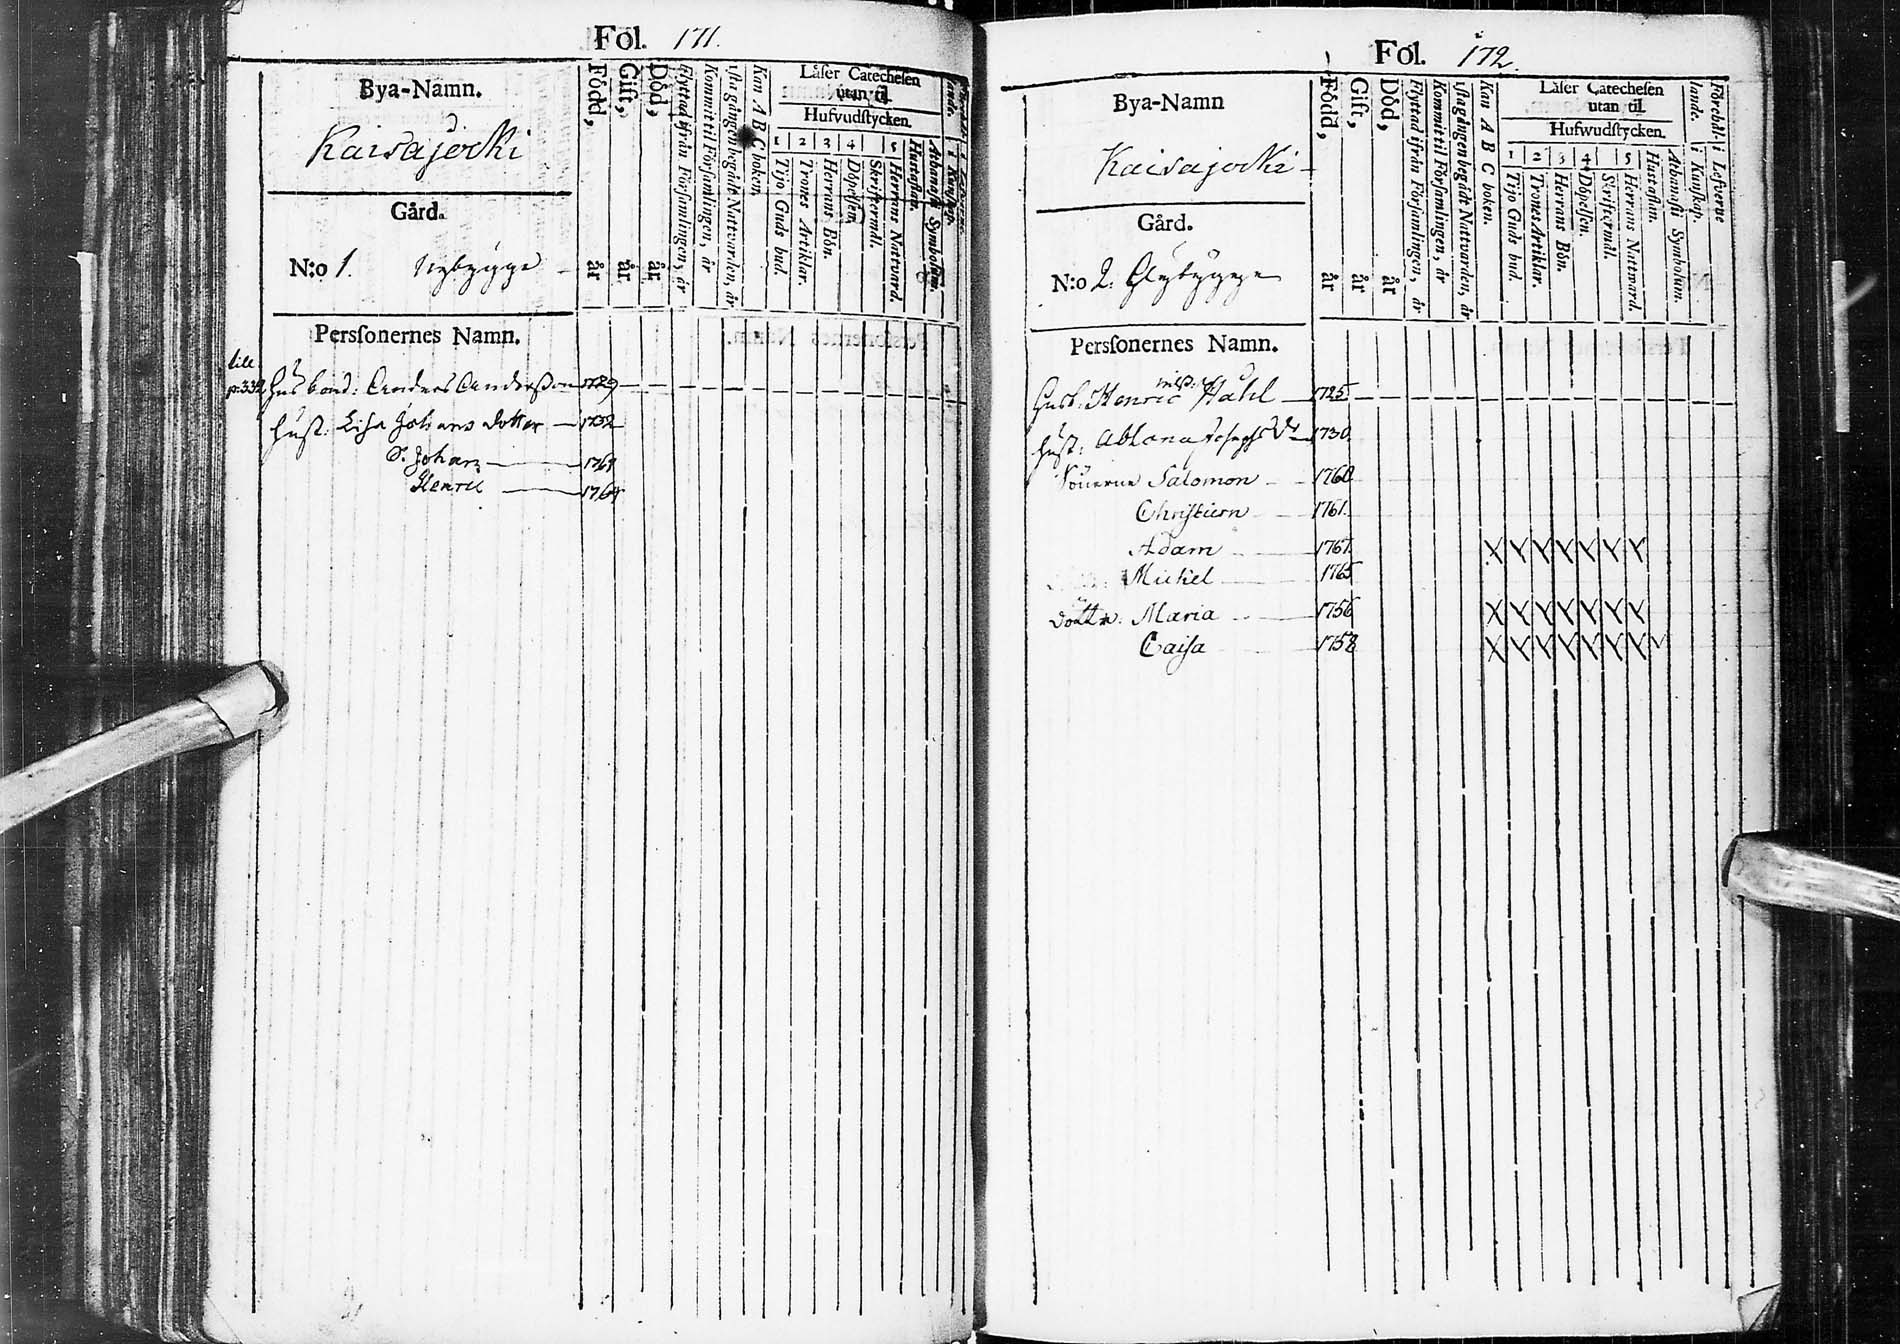 Fol. 171.
Bya-Namn.
Kaisajocki
Gård.
N:o 1. Nybygge
Född, år
Gift, år
Död, år
Flyttad ifrån Församlingen, år
Kommit til Församlingen, år
1sta gången begådt Nattvarden, år
Kan A B C boken.
Låser Catechesen
utan til.
Hufvudstycken.
1 2 3 4 5
Tijo Guds bud.
Trones Artiklar.
Herrans Bön.
Döpelsen.
Skriftermål.
Herrans Nattvard.
Hustaflan.
Athanasii Symbolum.
Persſonernes Namn.
till
p: 332
Husbond: Anders Andersson 1729
Hust: Lisa Johans dotter 1732
S. Johan 1761
Henric 1764
Fol. 172.
Bya-Namn
Kaisajocki
Gård.
N:o 2. Nybygge
Född, år
Gift, år
Död, år
Flyttad ifrån Församlingen, år
Kommit til Församlingen, år
1sta gången begådt Nattvarden, år
Kan A B C boken.
Låser Catechesen
utan til.
Hufwudstycken.
1 2 3 4 5
Tijo Guds bud.
Trones Artiklar.
Herrans Bön.
Döpelsen.
Skriftermål.
Herrans Nattvard.
Hustaflan.
Athanasii Symbolum.
lande i Kunskap.
Förehål: i Lefverne
Persſonernes Namn.
Husb: Henric Hahl 1725
Hust: Ablona Josephs Dr 1730
Sönerne Salomon 1760
Christiern 1761.
Adam 1767
Michel 1765
Döttr: Maria 1756
Caisa 1758